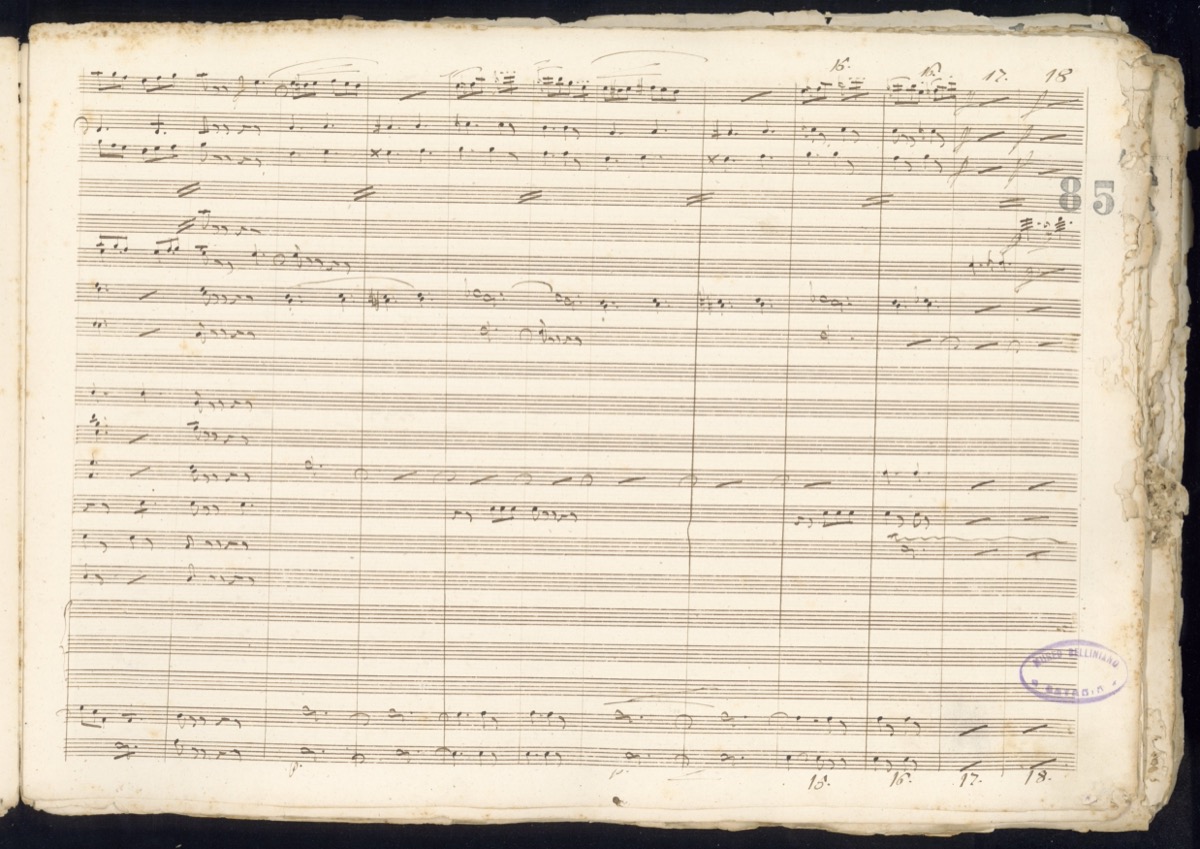 16. 16. 17. 18
85
MUSEO BELLINIANO
CATANIA
p. p.
15. 16. 17. 18.